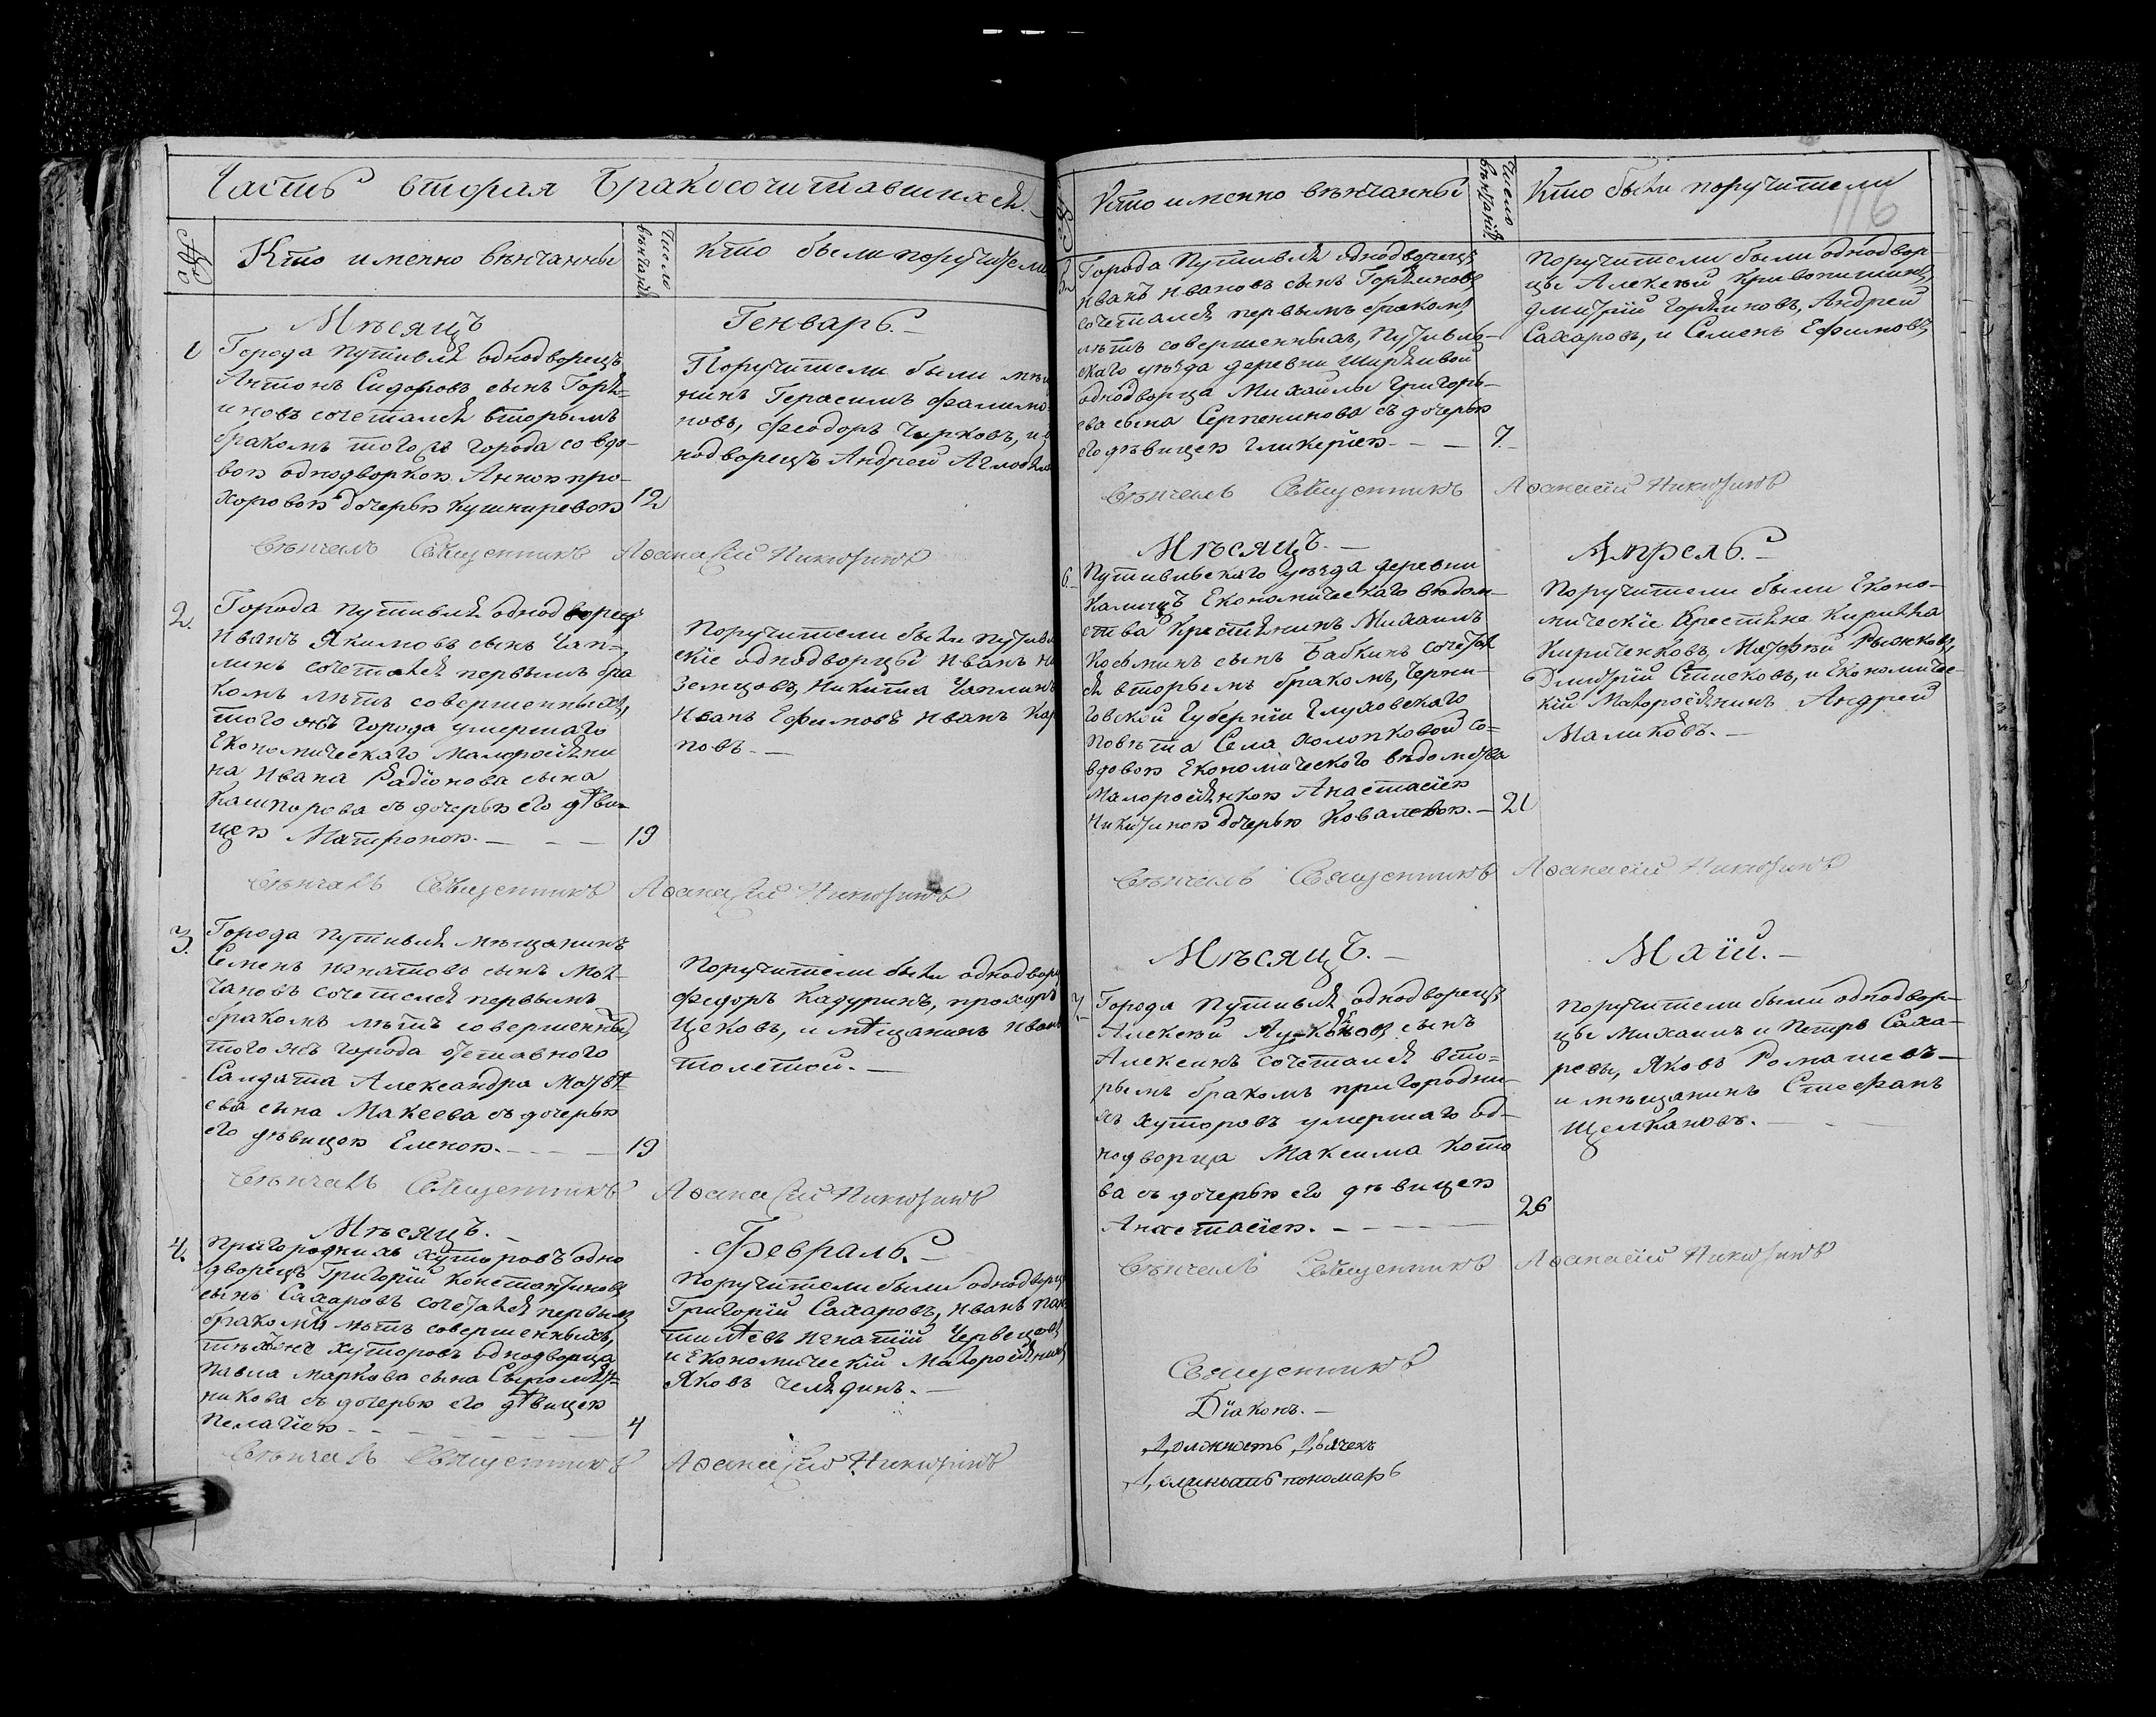 Часть вторая бракосочитавшихся.
№
Кто именно вѣнчанны
Число вѣнчаній
Кто были поручители
Мѣсяцъ
Генварь.
1
Города Путивля однодворецъ
Антонъ Сидоровъ сынъ Горя=
иновъ сочетался вторымъ
бракомъ того жъ города со вдо-
вою однодворкою Анною про-
хоровою дочерью Кушниревою
12
Поручители были мѣщ
нинъ Герасимъ Филимо
новъ, Феодоръ Чирковъ, и о
нодворецъ Андрей
Вѣнчалъ Священникъ Аѳанасий Никитинъ
2.
Города Путивля однодворец
Иванъ Якимовъ сынъ Чап-
линъ сочетался первымъ бра
комъ лѣтъ совершенныхъ,
того жъ города умершаго
Економическаго Малоросіяни
на Ивана Радіонова сына
Кашпорова съ дочерью его дѣви
цею Матроною.
19
Поручители были Путивл
скіе однодворцы Иванъ
Земцовъ, Никита Чаплинъ
Иванъ Ефимовъ Иванъ Кар
повъ.
Вѣнчалъ Священникъ Аѳанасий Никитинъ
3.
Города Путивля мѣщанинъ
Семенъ Игнатовъ сынъ Мол
чановъ сочетался первымъ
бракомъ лѣтъ совершенны,
того жъ города отставного
Салдата Александра Матвѣ
ева сына Макеева съ дочерью
его дѣвицею Еленою.
19
Поручители были однодвор
Федоръ Кадуринъ, прохоръ
Цековъ, и мѣщанинъ Иванъ
толстой.
Вѣнчалъ Священникъ Аѳанасий Никитинъ
Мѣсяцъ.
Февраль.
4.
Пригороднихъ хуторовъ одно
дворецъ Григорій Константиновъ
сынъ Сахаровъ сочетался первым
бракомъ лѣтъ совершенныхъ,
тѣхъ же хуторовъ однодворца
Павла Маркова сына Сыромят=
никова съ дочерью его дѣвицею
Пелагіею
4
Поручители были однодворц
Григорій Сахаровъ, Иванъ Пан
тилѣевъ Игнатій Червецовъ
и Економическій Малоросіянинъ
Яковъ Челядинъ.
Вѣнчалъ Священникъ Аѳанасий Никитинъ
№
Кто именно вѣнчанны
Число вѣнчаній
Кто были поручители
116
5.
Города Путивля однодворецъ
Иванъ Ивановъ сынъ Горяиновъ
сочетался первымъ бракомъ,
лѣтъ совершенныхъ, Путивль-
скаго уѣзда деревни Ширяивой
однодворца Михайлы Григорь-
ева сына Серпенинова съ дочерью
его дѣвицею Гликеріею
7.
Поручители были однодвор
цы Алексѣй Кривопишинъ
Дмитрій Горяиновъ, Андрей
Сахаровъ, и Семенъ Ефимовъ,
Вѣнчалъ Священникъ Аѳанасій Никитинъ
Мѣсяцъ.
Апрель.
6.
Путивльскаго уѣзда деревни
Калищъ Економическаго вѣдом-
ства Крестянинъ Михаилъ
Косминъ сынъ Бабкинъ сочетал
ся вторымъ бракомъ, Черни-
говской Губерніи Глуховскаго
повѣта Села Холопковой со=
вдовою Економического вѣдомства
Малоросіянкою Анастасіею
Никитиною дочерью Ковалевою.
21
Поручители были Еконо-
мическіе Крестяне Кирилла
Кириченковъ, Матфѣй Рыжковъ,
Дмитрій Стисковъ, и Економичес-
кій Малоросіянинъ Андрей
Маликовъ.
Вѣнчалъ Священникъ Аѳанасій Никитинъ
Мѣсяцъ.
Маій.
7.
Города Путивля однодворецъ
Алексѣй сынъ
Алехинъ сочетался вто=
рымъ бракомъ пригородни-
хъ хуторовъ умершаго од-
нодворца Максима Кото
ва съ дочерью его дѣвицею
Анастасіею.
26
Поручители были однодвор-
цы Михаилъ и Петръ Саха-
ровы, Яковъ Ромашевъ
и мѣщанинъ Стефанъ
Щелкановъ.
Вѣнчалъ Священникъ Аѳанасій Никитинъ
Священникъ
Діаконъ.
Должность Дьячекъ
пономарь